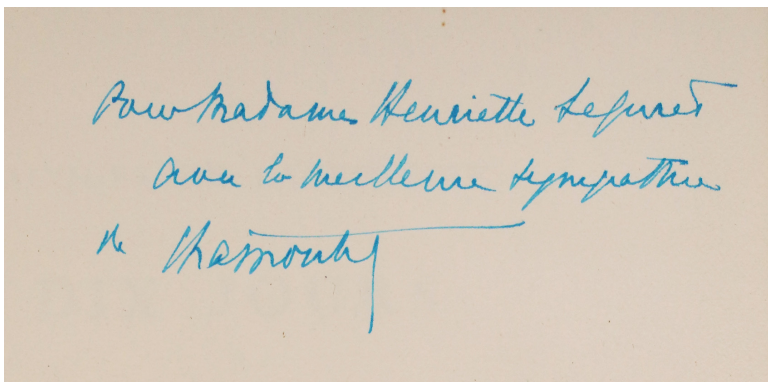 Pour Madame Henriette Seguret
avec la meilleure sympathie
de